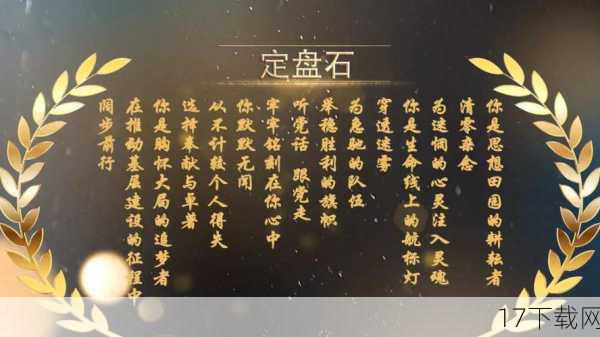 定盘石
你是思想田园的耕耘者
清零杂念
为迷惘的心灵注入灵魂
你是生命线上的航标灯
穿透迷雾
为急驰的队伍
举稳胜利的旗帜
听党话 跟党走
牢牢铭刻在你心中
你默默无闻
从不计较个人得失
选择奉献与卓著
你是胸怀大局的追梦者
在推动基层建设的征程中
阔步前行
17下载网